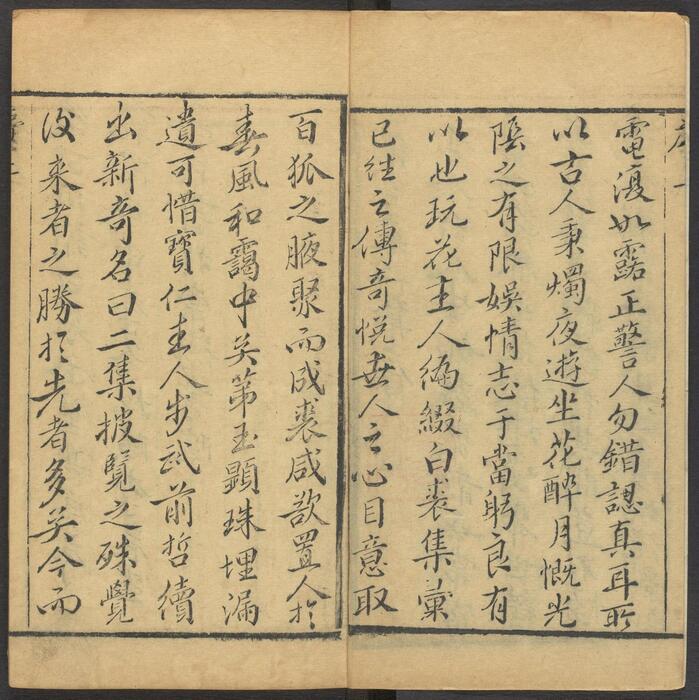 序 一
電復如露正警人勿錯認真耳所
以古人秉燭夜遊坐花醉月慨光
陰之有限娛情志于當躬良有
以也玩花主人編綴白裘集彙
已往之傳奇悅世人之心目意取
百狐之腋聚而成裘咸欲置人於
春風和靄中矣第玉顯珠埋漏
遺可惜寶仁主人步武前哲續
出新奇名曰二集披覽之殊覺
後来者之勝於先者多矣今而